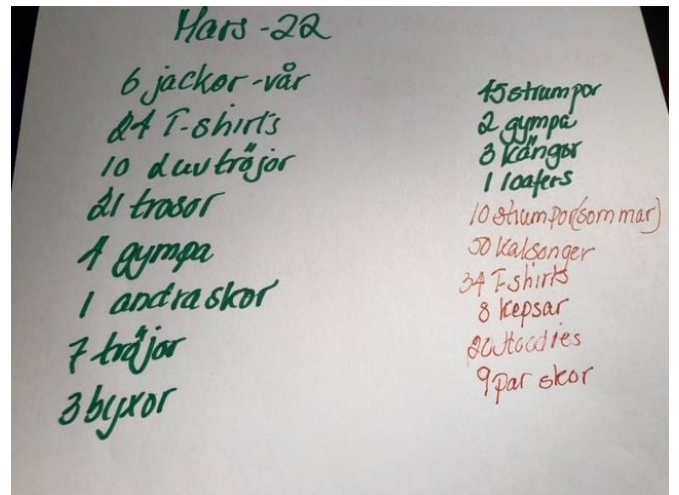 Mars -22
6 jackor -vår
24 T-shirts
10 luvtröjor
21 trosor
4 gympa
1 andra skor
7 tröjor
3 byxor
45 strumpor
2 gympa
3 kängor
1 loafers
10 strumpor (sommar)
50 Kalsonger
34 T-shirts
8 kepsar
20 Hoodies
9 par skor